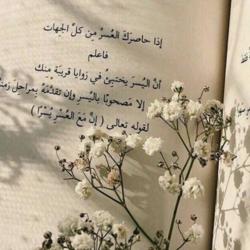 إذا حاصرَكَ العُسرُ مِن كلِّ الجِهات
فاعلم
أنَّ اليُسرَ يختبئُ في زوايا قريبَةٍ منك
إلا مصحوبًا باليُسرِ وإن تقدَّمَهُ بمراحل
لقوله تعالى ( إنَّ مَعَ العُسْرِ يُسْرًا )